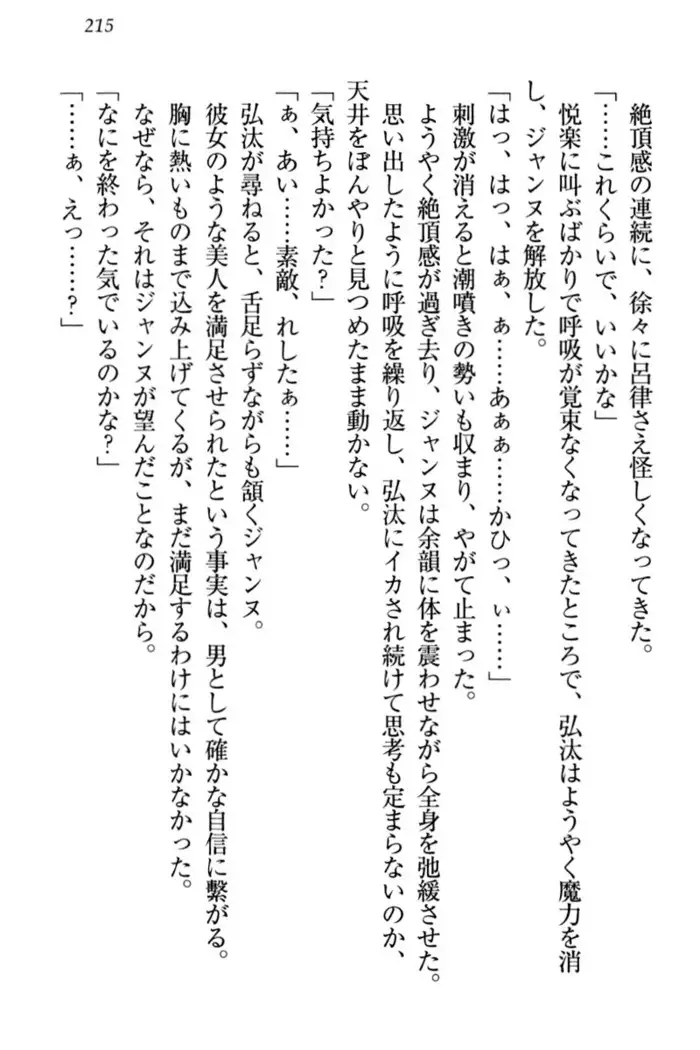 215
絶頂感の連続に、徐々に呂律さえ怪しくなってきた。
「……これくらいで、いいかな」
悦楽に叫ぶばかりで呼吸が覚束なくなってきたところで、弘汰はようやく魔力を消
し、ジャンヌを解放した。
「はっ、はっ、はぁ、ぁ……あぁぁ……かひっ、ぃ……」
刺激が消えると潮噴きの勢いも収まり、やがて止まった。
ようやく絶頂感が過ぎ去り、ジャンヌは余韻に体を震わせながら全身を弛緩させた。
思い出したように呼吸を繰り返し、弘汰にイカされ続けて思考も定まらないのか、
天井をぼんやりと見つめたまま動かない。
「気持ちよかった？」
「ぁ、あい……素敵、れしたぁ……」
弘汰が尋ねると、舌足らずながらも頷くジャンヌ。
彼女のような美人を満足させられたという事実は、男として確かな自信に繋がる。
胸に熱いものまで込み上げてくるが、まだ満足するわけにはいかなかった。
なぜなら、それはジャンヌが望んだことなのだから。
「なにを終わった気でいるのかな？」
「……ぁ、えっ……？」